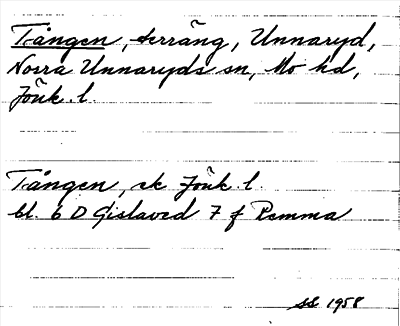 Tången, terräng, Unnaryd,
Norra Unnaryds sn, Mo hd,
Jönk. l.
Tången, ek Jönk. l.
bl. 6 D Gislaved 7 f Remma
SL 1958